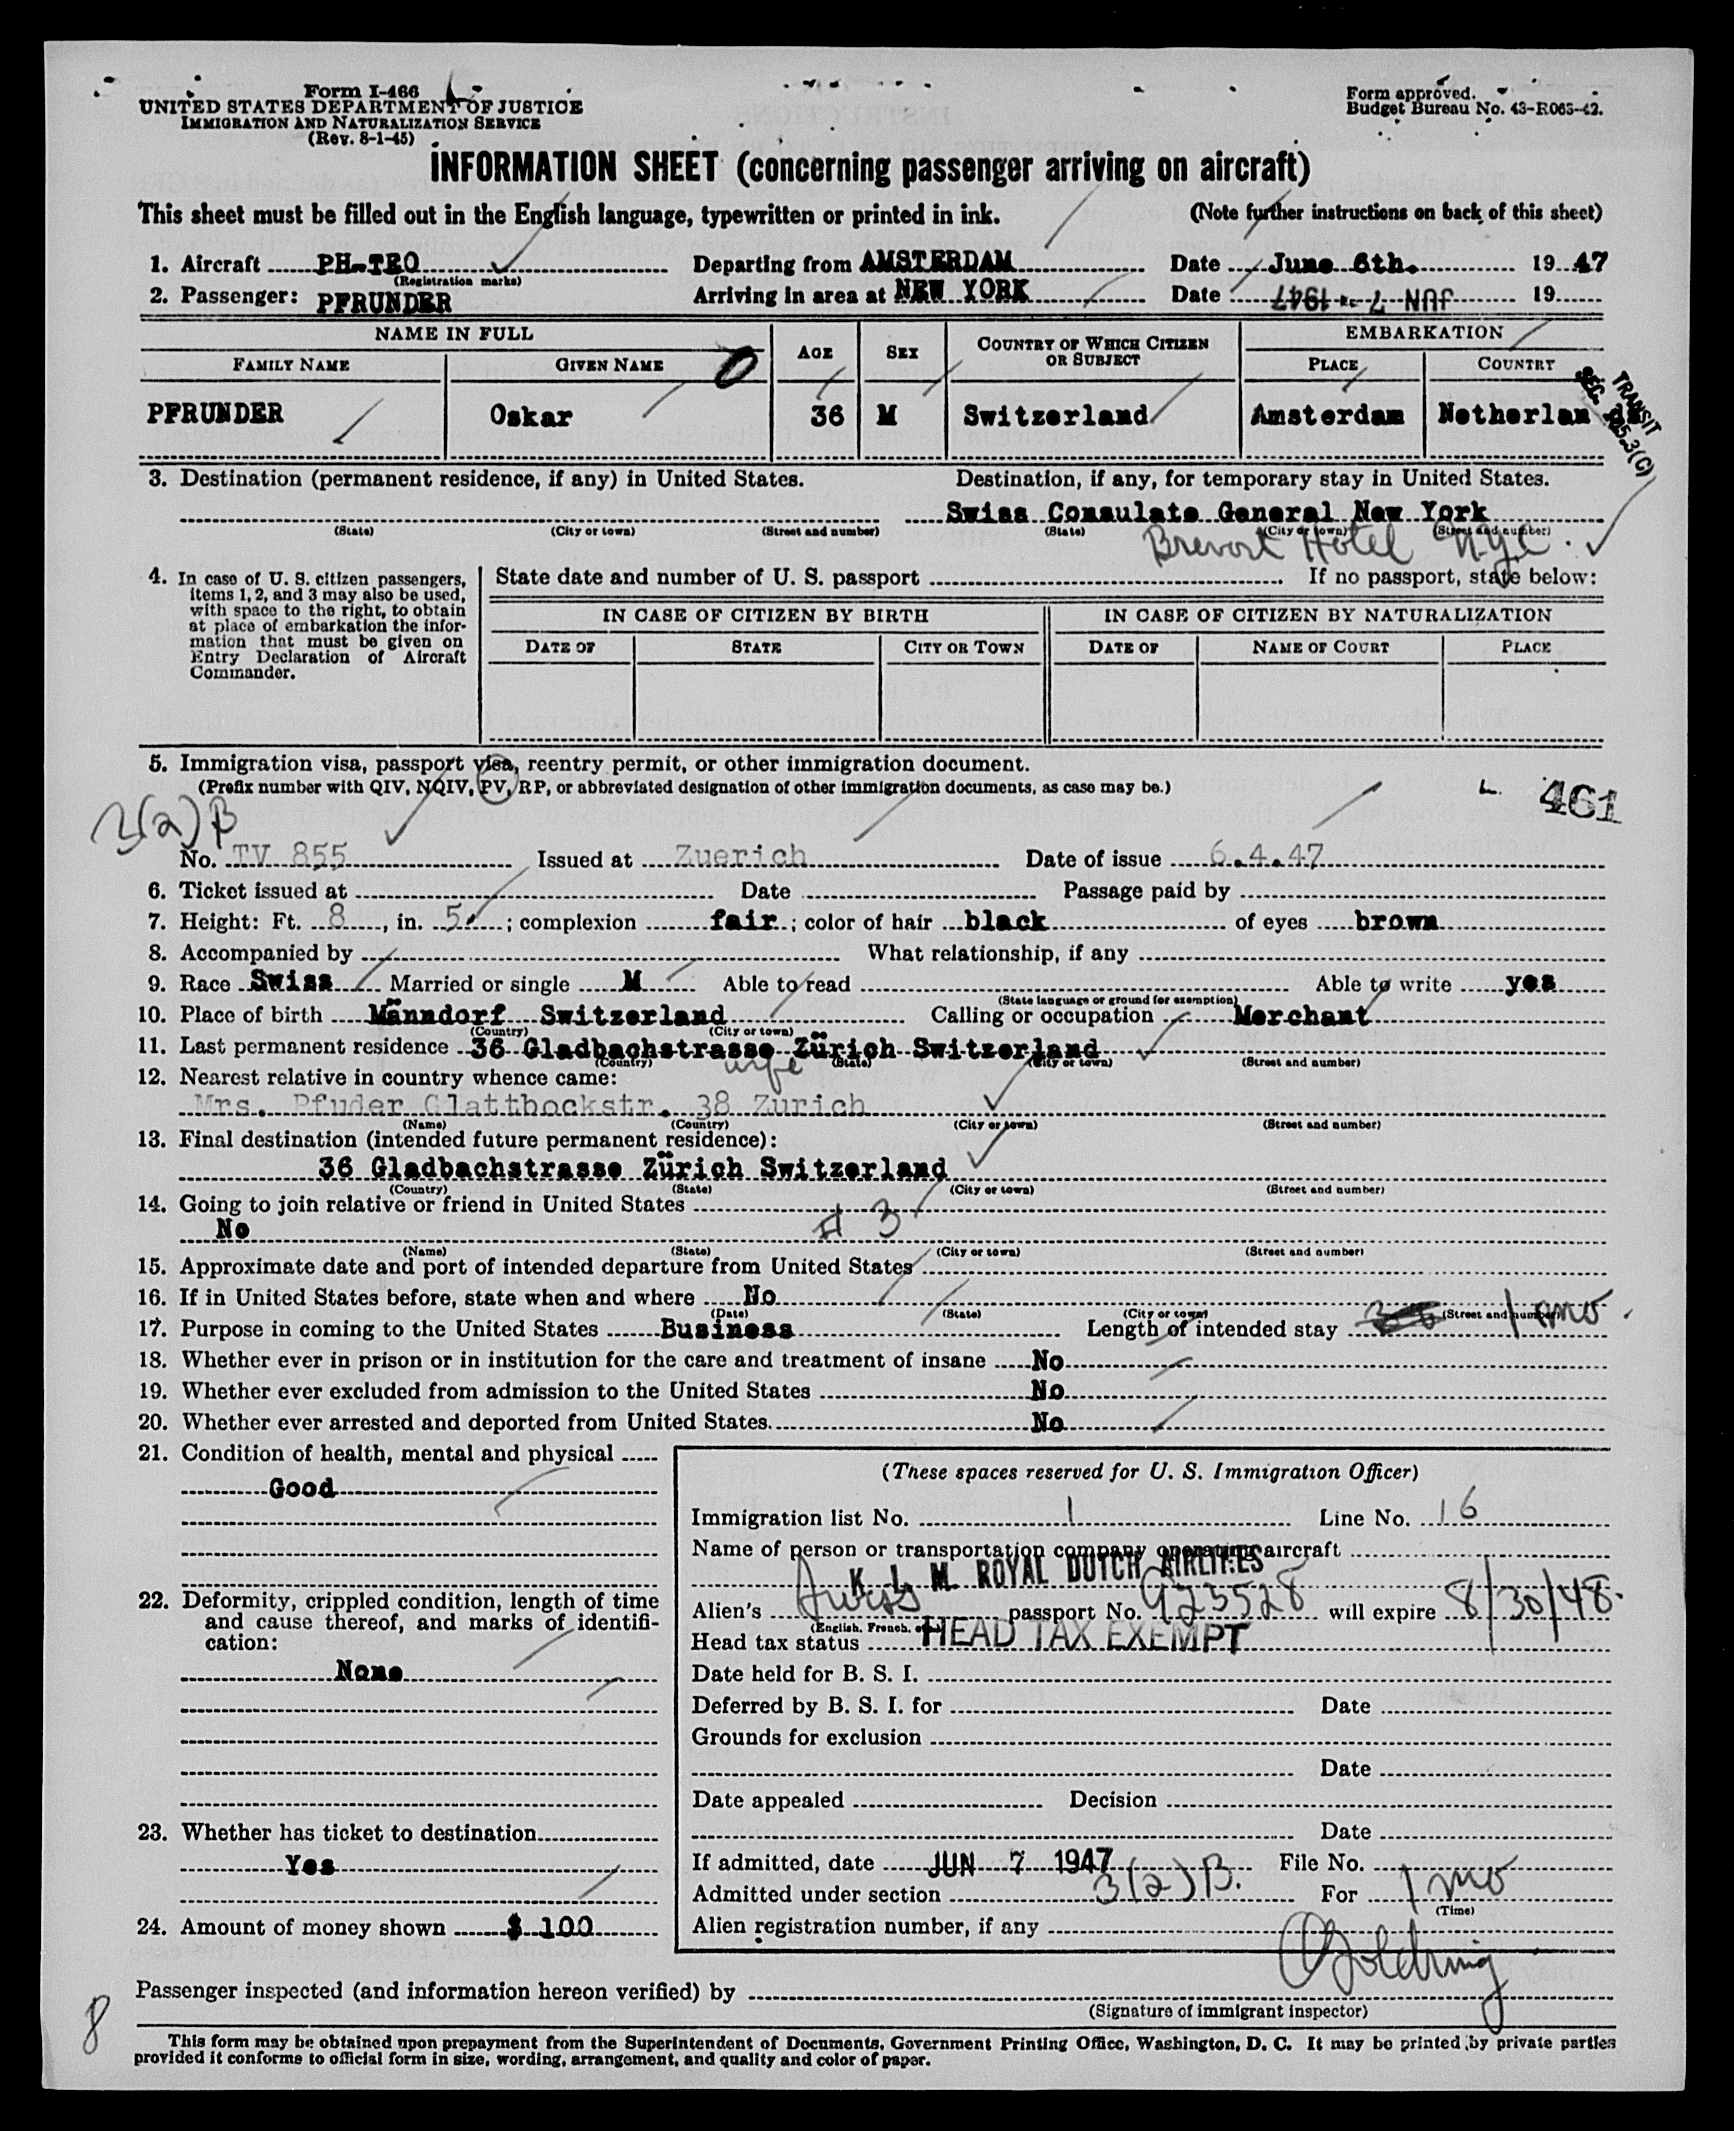 Form I-466
UNITED STATES DEPARTMENT OF JUSTICE
IMMIGRATION AND NATURALIZATION SERVICE
(Rev. 8-1-45)
Form approved.
Budget Bureau No. 43-R065-42.
INFORMATION SHEET (concerning passenger arriving on aircraft)
This sheet must be filled out in the English language, typewritten or printed in ink. (Note further instructions on back of this sheet)
1. Aircraft PH-TEO Departing from AMSTERDAM Date June 6th. 19 47
(Registration marks)
2. Passenger: PFRUNDER Arriving in area at NEW YORK Date JUN 7 - 1947 19
NAME IN FULL AGE SEX COUNTRY OF WHICH CITIZEN OR SUBJECT EMBARKATION
FAMILY NAME GIVEN NAME PLACE COUNTRY
PFRUNDER Oskar 36 M Switzerland Amsterdam Netherlan ds
TRANSIT
SEC. 125.3(C)
3. Destination (permanent residence, if any) in United States. Destination, if any, for temporary stay in United States.
Swiss Consulate General New York
(State) (City or town) (Street and number) (State) (City or town) (Street and number)
Brevort Hotel N.Y.C.
4. In case of U. S. citizen passengers, items 1, 2, and 3 may also be used, with space to the right, to obtain at place of embarkation the information that must be given on Entry Declaration of Aircraft Commander.
State date and number of U. S. passport If no passport, state below:
IN CASE OF CITIZEN BY BIRTH IN CASE OF CITIZEN BY NATURALIZATION
DATE OF STATE CITY OR TOWN DATE OF NAME OF COURT PLACE
5. Immigration visa, passport visa, reentry permit, or other immigration document.
(Prefix number with QIV, NQIV, PV, RP, or abbreviated designation of other immigration documents, as case may be.)
L. 461
3(2)B
No. TV 855 Issued at Zuerich Date of issue 6.4.47
6. Ticket issued at Date Passage paid by
7. Height: Ft. 8, in. 5; complexion fair; color of hair black of eyes brown
8. Accompanied by What relationship, if any
9. Race Swiss Married or single M Able to read Able to write yes
(State language or ground for exemption)
10. Place of birth Männdorf Switzerland Calling or occupation Merchant
(Country) (City or town)
11. Last permanent residence 36 Gladbachstrasse Zürich Switzerland
(Country) (State) (City or town) (Street and number)
wife
12. Nearest relative in country whence came:
Mrs. Pfuder Glattbockstr. 38 Zurich
(Name) (Country) (City or town) (Street and number)
13. Final destination (intended future permanent residence):
36 Gladbachstrasse Zürich Switzerland
(Country) (State) (City or town) (Street and number)
14. Going to join relative or friend in United States
No # 3
(Name) (State) (City or town) (Street and number)
15. Approximate date and port of intended departure from United States
16. If in United States before, state when and where No
(Date) (State) (City or town) (Street and number)
17. Purpose in coming to the United States Business Length of intended stay 1 mo.
18. Whether ever in prison or in institution for the care and treatment of insane No
19. Whether ever excluded from admission to the United States No
20. Whether ever arrested and deported from United States. No
21. Condition of health, mental and physical
Good
22. Deformity, crippled condition, length of time and cause thereof, and marks of identification:
None
23. Whether has ticket to destination
Yes
24. Amount of money shown $ 100
(These spaces reserved for U. S. Immigration Officer)
Immigration list No. 1 Line No. 16
Name of person or transportation company operating aircraft
K. L. M. ROYAL DUTCH AIRLINES
Alien's Swiss passport No. 923528 will expire 8/30/48.
(English, French, etc.)
Head tax status HEAD TAX EXEMPT
Date held for B. S. I.
Deferred by B. S. I. for Date
Grounds for exclusion
Date
Date appealed Decision
Date
If admitted, date JUN 7 1947 File No.
Admitted under section 3(2)B. For 1 mo
(Time)
Alien registration number, if any
Passenger inspected (and information hereon verified) by Goldring
(Signature of immigrant inspector)
8
This form may be obtained upon prepayment from the Superintendent of Documents, Government Printing Office, Washington, D. C. It may be printed by private parties
provided it conforms to official form in size, wording, arrangement, and quality and color of paper.